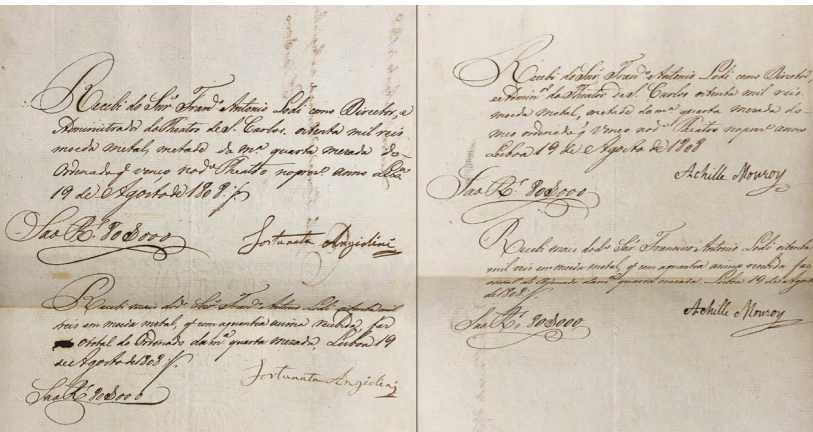 Recebi do Snr. Franco. Antonio Lodi como Director, e
Administrador do Theatro de S. Carlos, oitenta mil reis
moeda metal, metade da ma. quarta mezada do
Ordenado q venço no do. Theatro no prez. anno Lxa.
19 de Agosto de 1808
Sao Rs. 80$000
Fortunata Angiolini
Recebi mais do do. Snr. Franco. Antonio Lodi oitenta mil
reis em moeda metal, q com aquantia acima recebida, faz
ototal do Ordenado da ma. quarta mezada. Lisboa 19
de Agosto de 1808
Sao Rs. 80$000
Fortunata Angiolini
Recebi do Snr. Franco. Antonio Lodi como Director,
e Admin.or do Theatro de S. Carlos oitenta mil reis
moeda metal, metade da ma. quarta mezada do
meo ordenado q venço no do. Theatro no prez. anno
Lisboa 19 de Agosto de 1808
Achille Monroy
Sao Rs. 80$000
Recebi mais do do. Snr. Francisco Antonio Lodi oitenta
mil reis em moeda metal, q com aquantia acima recebida faz
ototal do Ordenado da ma. quarta mezada Lisboa 19 de Agosto
de 1808
Achille Monroy
Sao Rs. 80$000